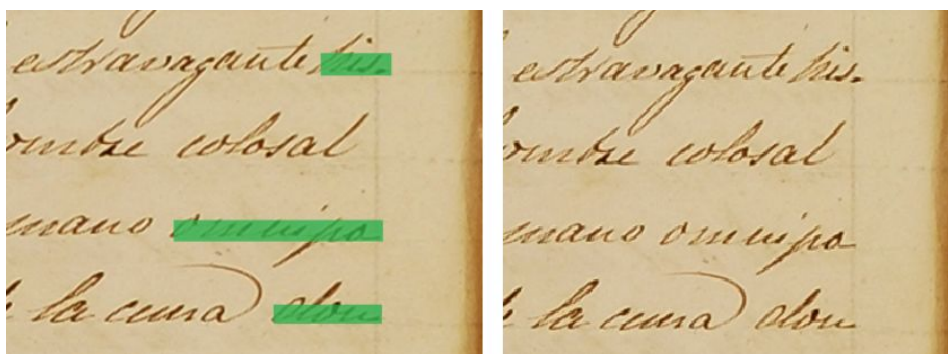 estravagante his-
ombre colosal
mano omnipo
la cuna) don-
estravagante his-
ombre colosal
mano omnipo
la cuna) don-